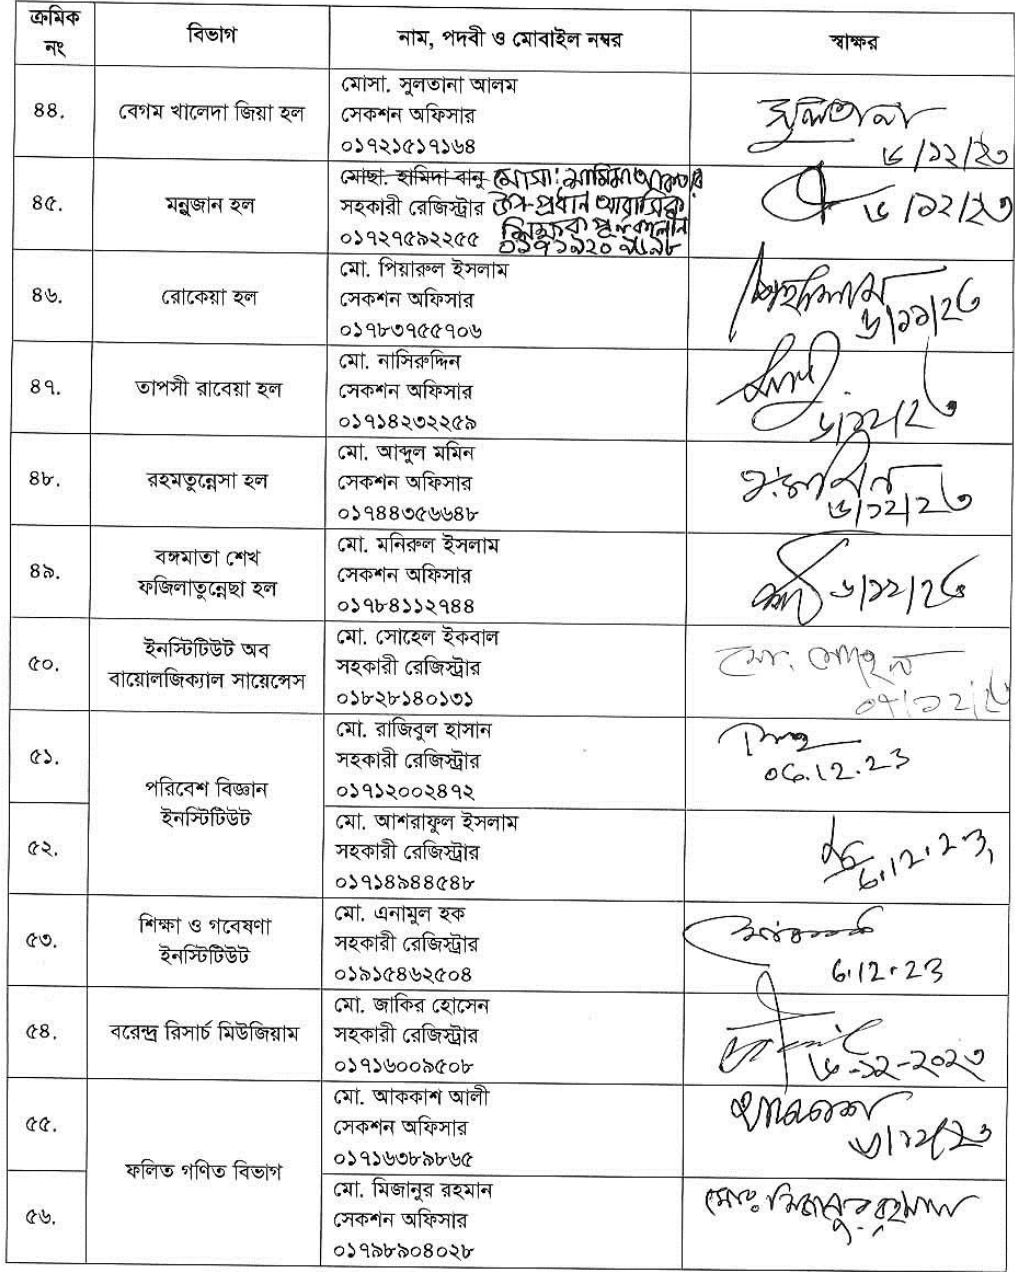 ক্রমিক
নং
বিভাগ
নাম, পদবী ও মোবাইল নম্বর
স্বাক্ষর
৪৪.
বেগম খালেদা জিয়া হল
মোসা. সুলতানা আলম
সেকশন অফিসার
০১৭২১৫১৭১৬৪
সুলতানা
৬/১২/২৩
৪৫.
মন্নুজান হল
মোছা. হামিদা বানু মোসা:
সহকারী রেজিস্ট্রার উপ-প্রধান আবাসিক
০১৭২৭৫৯২২৫৫ শিক্ষক
৬/১২/২৩
৪৬.
রোকেয়া হল
মো. পিয়ারুল ইসলাম
সেকশন অফিসার
০১৭৮৩৭৫৫৭০৬
৬/১২/২৩
৪৭.
তাপসী রাবেয়া হল
মো. নাসিরুদ্দিন
সেকশন অফিসার
০১৭১৪২৩২২৫৯
৬/১২/২৩
৪৮.
রহমতুন্নেসা হল
মো. আব্দুল মমিন
সেকশন অফিসার
০১৭৪৪৩৫৬৬৪৮
৬/১২/২৩
৪৯.
বঙ্গমাতা শেখ
ফজিলাতুন্নেছা হল
মো. মনিরুল ইসলাম
সেকশন অফিসার
০১৭৮৪১১২৭৪৪
৬/১২/২৩
৫০.
ইনস্টিটিউট অব
বায়োলজিক্যাল সায়েন্সেস
মো. সোহেল ইকবাল
সহকারী রেজিস্ট্রার
০১৮২৮১৪০১৩১
মো. সোহেল
০৭/১২/২৩
৫১.
পরিবেশ বিজ্ঞান
ইনস্টিটিউট
মো. রাজিবুল হাসান
সহকারী রেজিস্ট্রার
০১৭১২০০২৪৭২
06.12.23
৫২.
মো. আশরাফুল ইসলাম
সহকারী রেজিস্ট্রার
০১৭১৪৯৪৪৫৪৮
6.12.23
৫৩.
শিক্ষা ও গবেষণা
ইনস্টিটিউট
মো. এনামুল হক
সহকারী রেজিস্ট্রার
০১৯১৫৪৬২৫০৪
6.12.23
৫৪.
বরেন্দ্র রিসার্চ মিউজিয়াম
মো. জাকির হোসেন
সহকারী রেজিস্ট্রার
০১৭১৬০০৯৫০৮
৬-১২-২০২৩
৫৫.
ফলিত গণিত বিভাগ
মো. আককাশ আলী
সেকশন অফিসার
০১৭১৬৩৮৯৮৬৫
৬/১২/২৩
৫৬.
মো. মিজানুর রহমান
সেকশন অফিসার
০১৭৯৮৯০৪০২৮
মোঃ মিজানুর রহমান